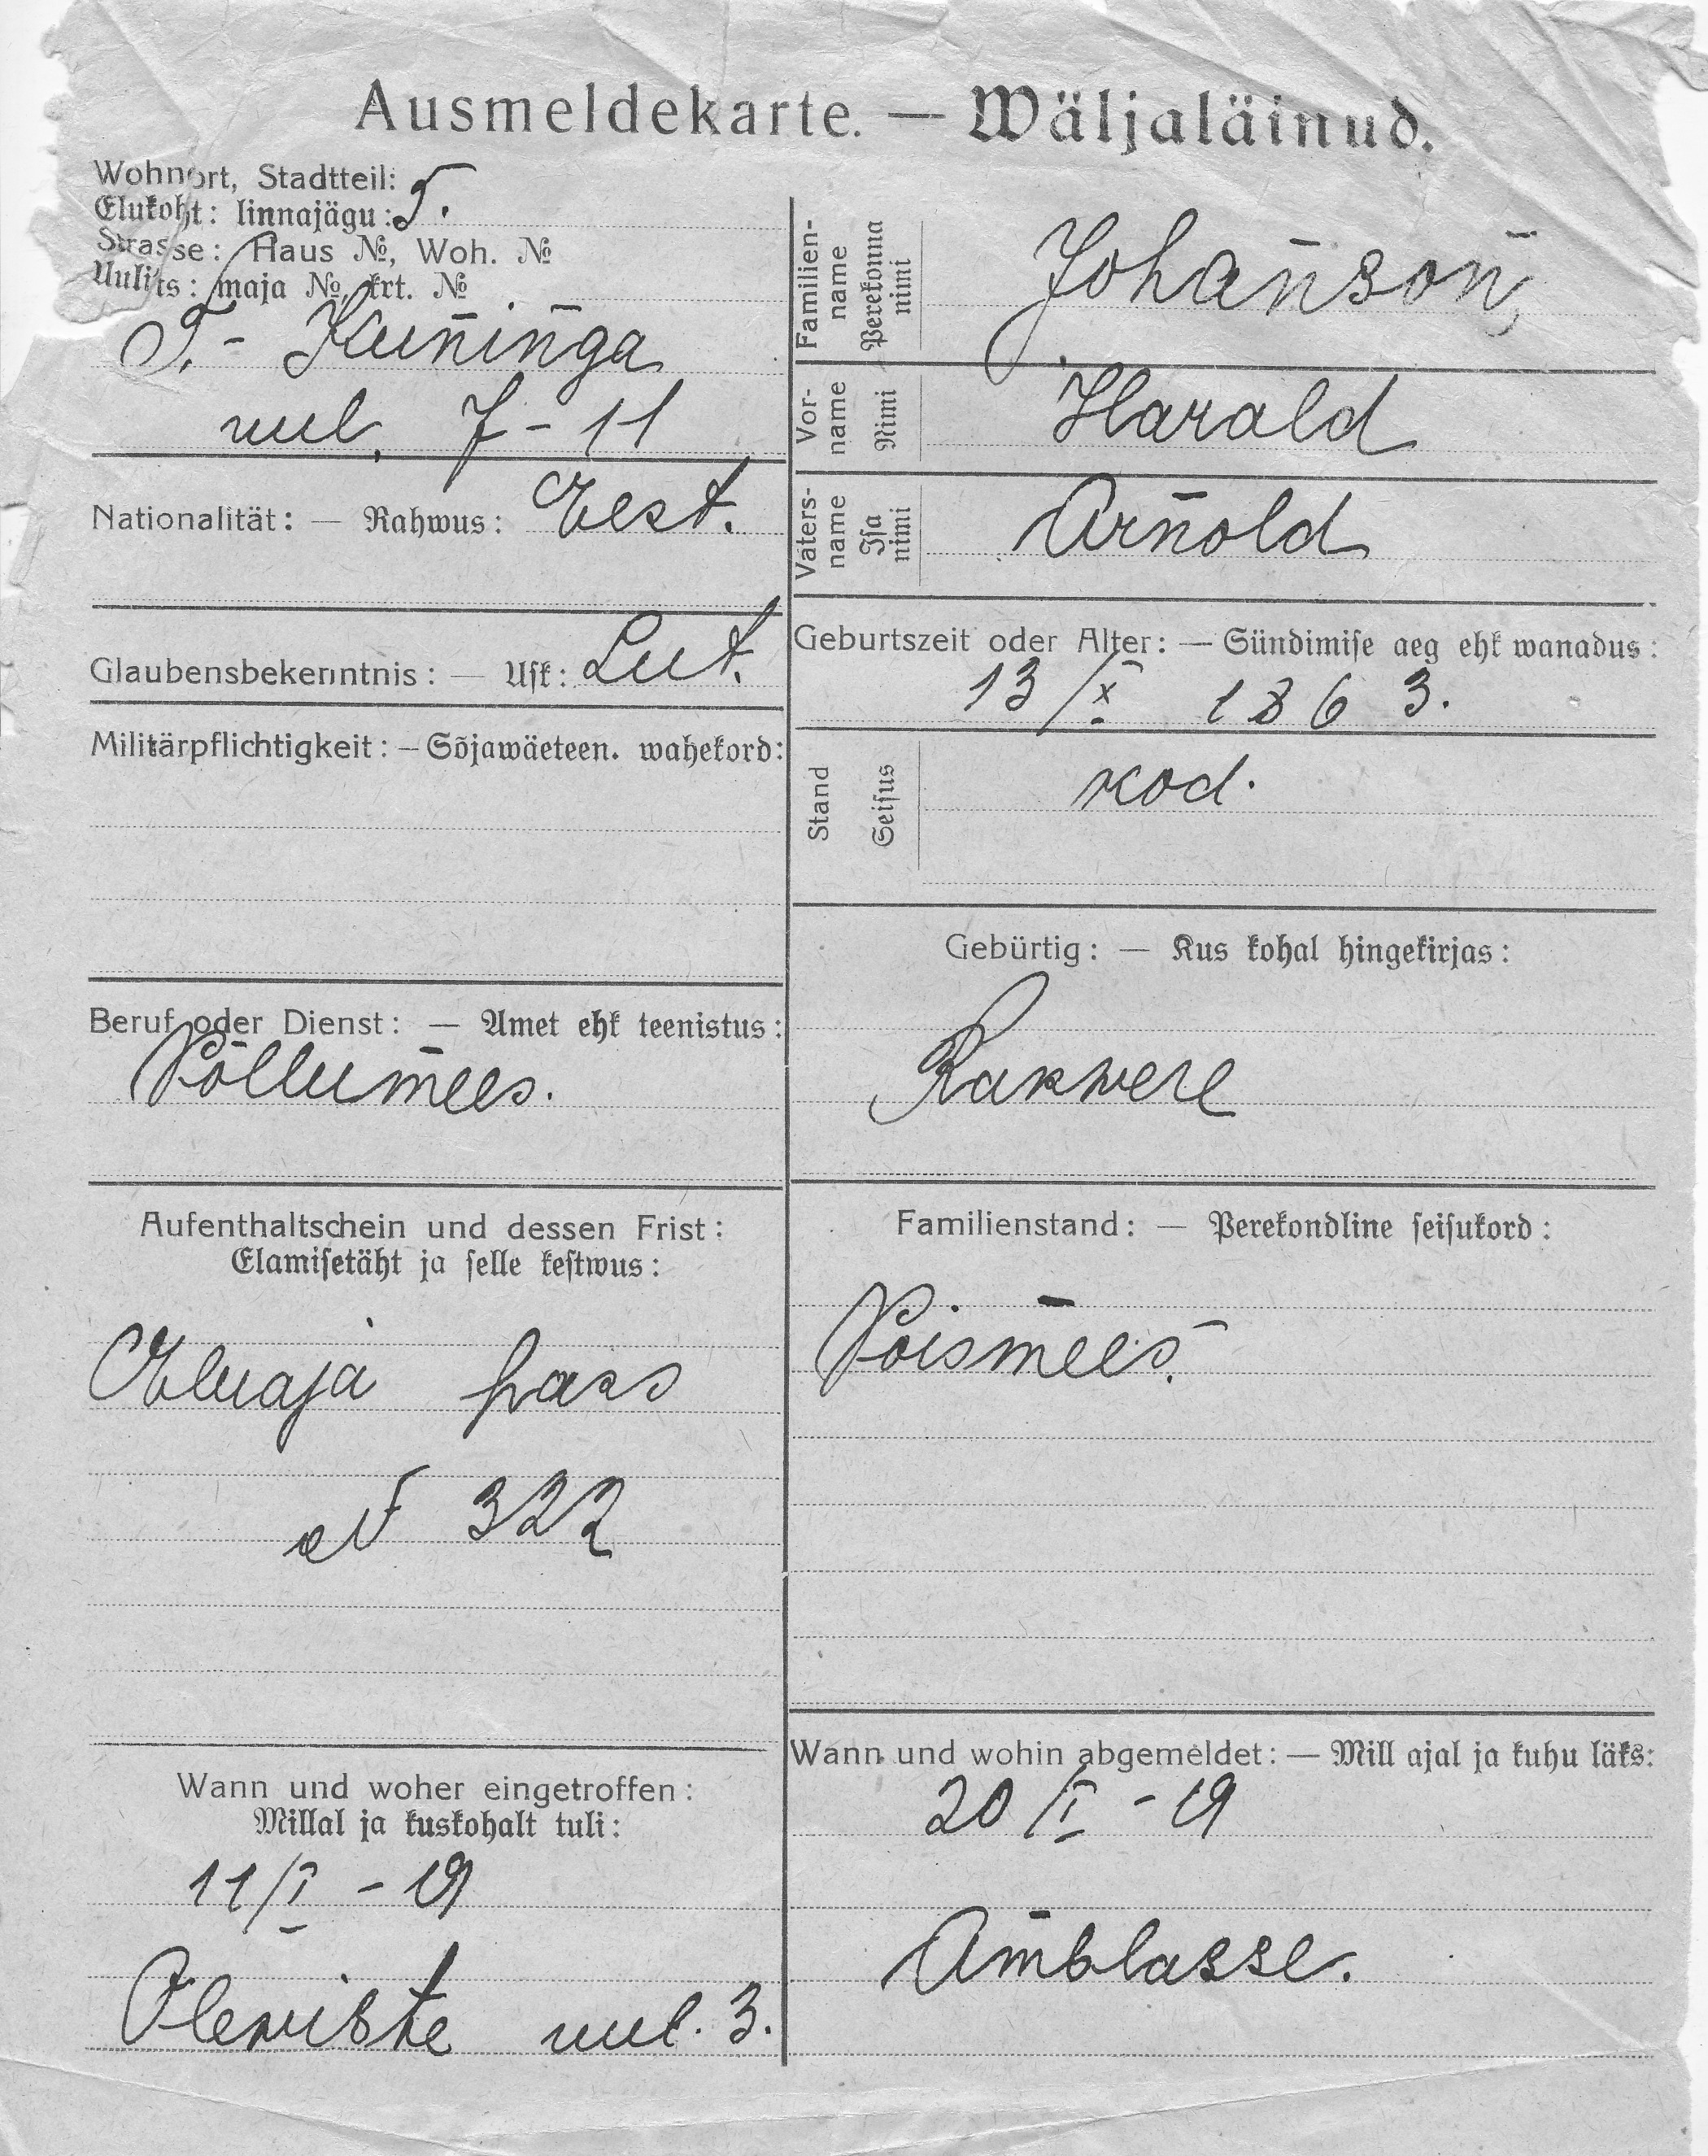 Ausmeldekarte. — Wäljaläinud.
Wohnort, Stadtteil: 5.
Elukoht: linnajägu:
Strasse: Haus №, Woh. №
Uulits: maja №, krt. №
T.- Kuninga
uul, 7-11
Nationalität: — Rahwus: Eest.
Glaubensbekenntnis: — Usk: Lut.
Militärpflichtigkeit: — Sõjawäeteen. wahekord:
Beruf oder Dienst: — Amet ehk teenistus:
Põllumees.
Aufenthaltschein und dessen Frist:
Elamisetäht ja selle kestwus:
Eluaja pass
№ 322
Wann und woher eingetroffen:
Millal ja kuskohalt tuli:
11/I - 19
Olewiste uul. 3.
Familien-
name
Perekonna
nimi
Johanson,
Vor-
name
Nimi
Harald
Vaters-
name
Isa
nimi
Arnold
Geburtszeit oder Alter: — Sündimise aeg ehk wanadus:
13/X 1863.
Stand
Seisus
kod.
Gebürtig: — Kus kohal hingekirjas:
Rakwere
Familienstand: — Perekondline seisukord:
Poismees.
Wann und wohin abgemeldet: — Mill ajal ja kuhu läks:
20/I - 19
Amblasse.